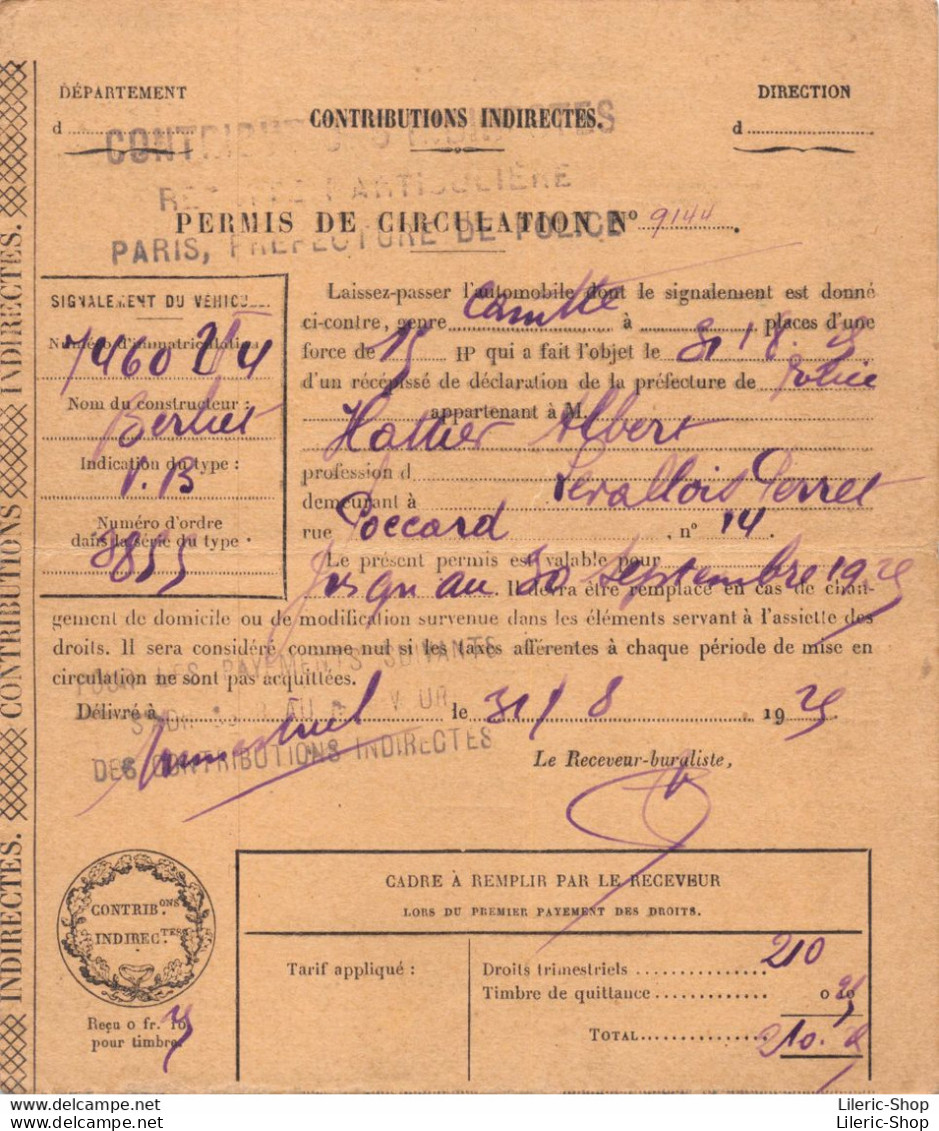 DÉPARTEMENT
d
CONTRIBUTIONS INDIRECTES.
DIRECTION
d
CONTRIBUTIONS INDIRECTES
RECETTE PARTICULIÈRE
PARIS, PRÉFECTURE DE POLICE
PERMIS DE CIRCULATION N° 9144.
INDIRECTES. CONTRIBUTIONS INDIRECTES. CONTRIBUTIONS INDIRECTES.
SIGNALEMENT DU VÉHICULE
Numéro d'immatriculation
7460
Nom du constructeur :
Berliet
Indication du type :
V.B
Numéro d'ordre
dans la série du type :
3855
Laissez-passer l'automobile dont le signalement est donné
ci-contre, genre Camtte à places d'une
force de 15 HP qui a fait l'objet le 31 8. 25
d'un récépissé de déclaration de la préfecture de Police
appartenant à M.
Albert
profession d
demeurant à Levallois Perret
rue Poccard, n° 14.
Le présent permis est valable pour
Jusqu'au 30 Septembre 1925. Il devra être remplacé en cas de chan-
gement de domicile ou de modification survenue dans les éléments servant à l'assiette des
droits. Il sera considéré comme nul si les taxes afférentes à chaque période de mise en
circulation ne sont pas acquittées.
POUR LES PAYEMENTS SUIVANTS
DES CONTRIBUTIONS INDIRECTES
Délivré à le 31/8 1925
Trimestriel
Le Receveur-buraliste,
CONTRIB.ONS
INDIREC.TES
Reçu 0 fr. 10
pour timbre.
CADRE À REMPLIR PAR LE RECEVEUR
LORS DU PREMIER PAYEMENT DES DROITS.
Tarif appliqué :
Droits trimestriels 210
Timbre de quittance 0 25
TOTAL 210.
Lileric-Shop
Lileric-Shop